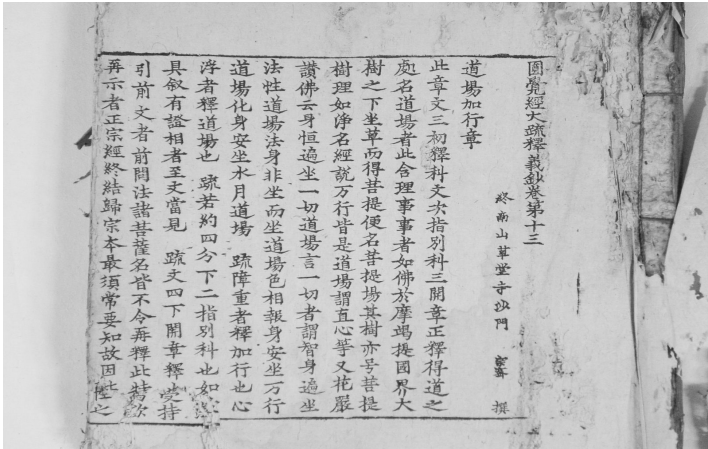 圓覺經大疏釋義鈔卷第十三
終南山草堂寺沙門 宗密 撰
道場加行章
此章文三初釋科文次指別科三開章正釋得道之
處名道場者此含理事事者如佛於摩竭提國界大
樹之下坐草而得菩提便名菩提場其樹亦号菩提
樹理如淨名經說万行皆是道場謂直心等又花嚴
讚佛云身恒遍坐一切道場言一切者謂智身遍坐
法性道場法身非坐而坐道場色相報身安坐万行
道場化身安坐水月道場 疏障重者釋加行也心
浮者釋道場也 疏若約四分下二指別科也如
具叙有證相者至文當見 疏文四下開章釋 受持
引前文者前問法諸菩薩名皆不令再釋此特次
再示者正宗經終結歸宗本最須常要知故因此 之